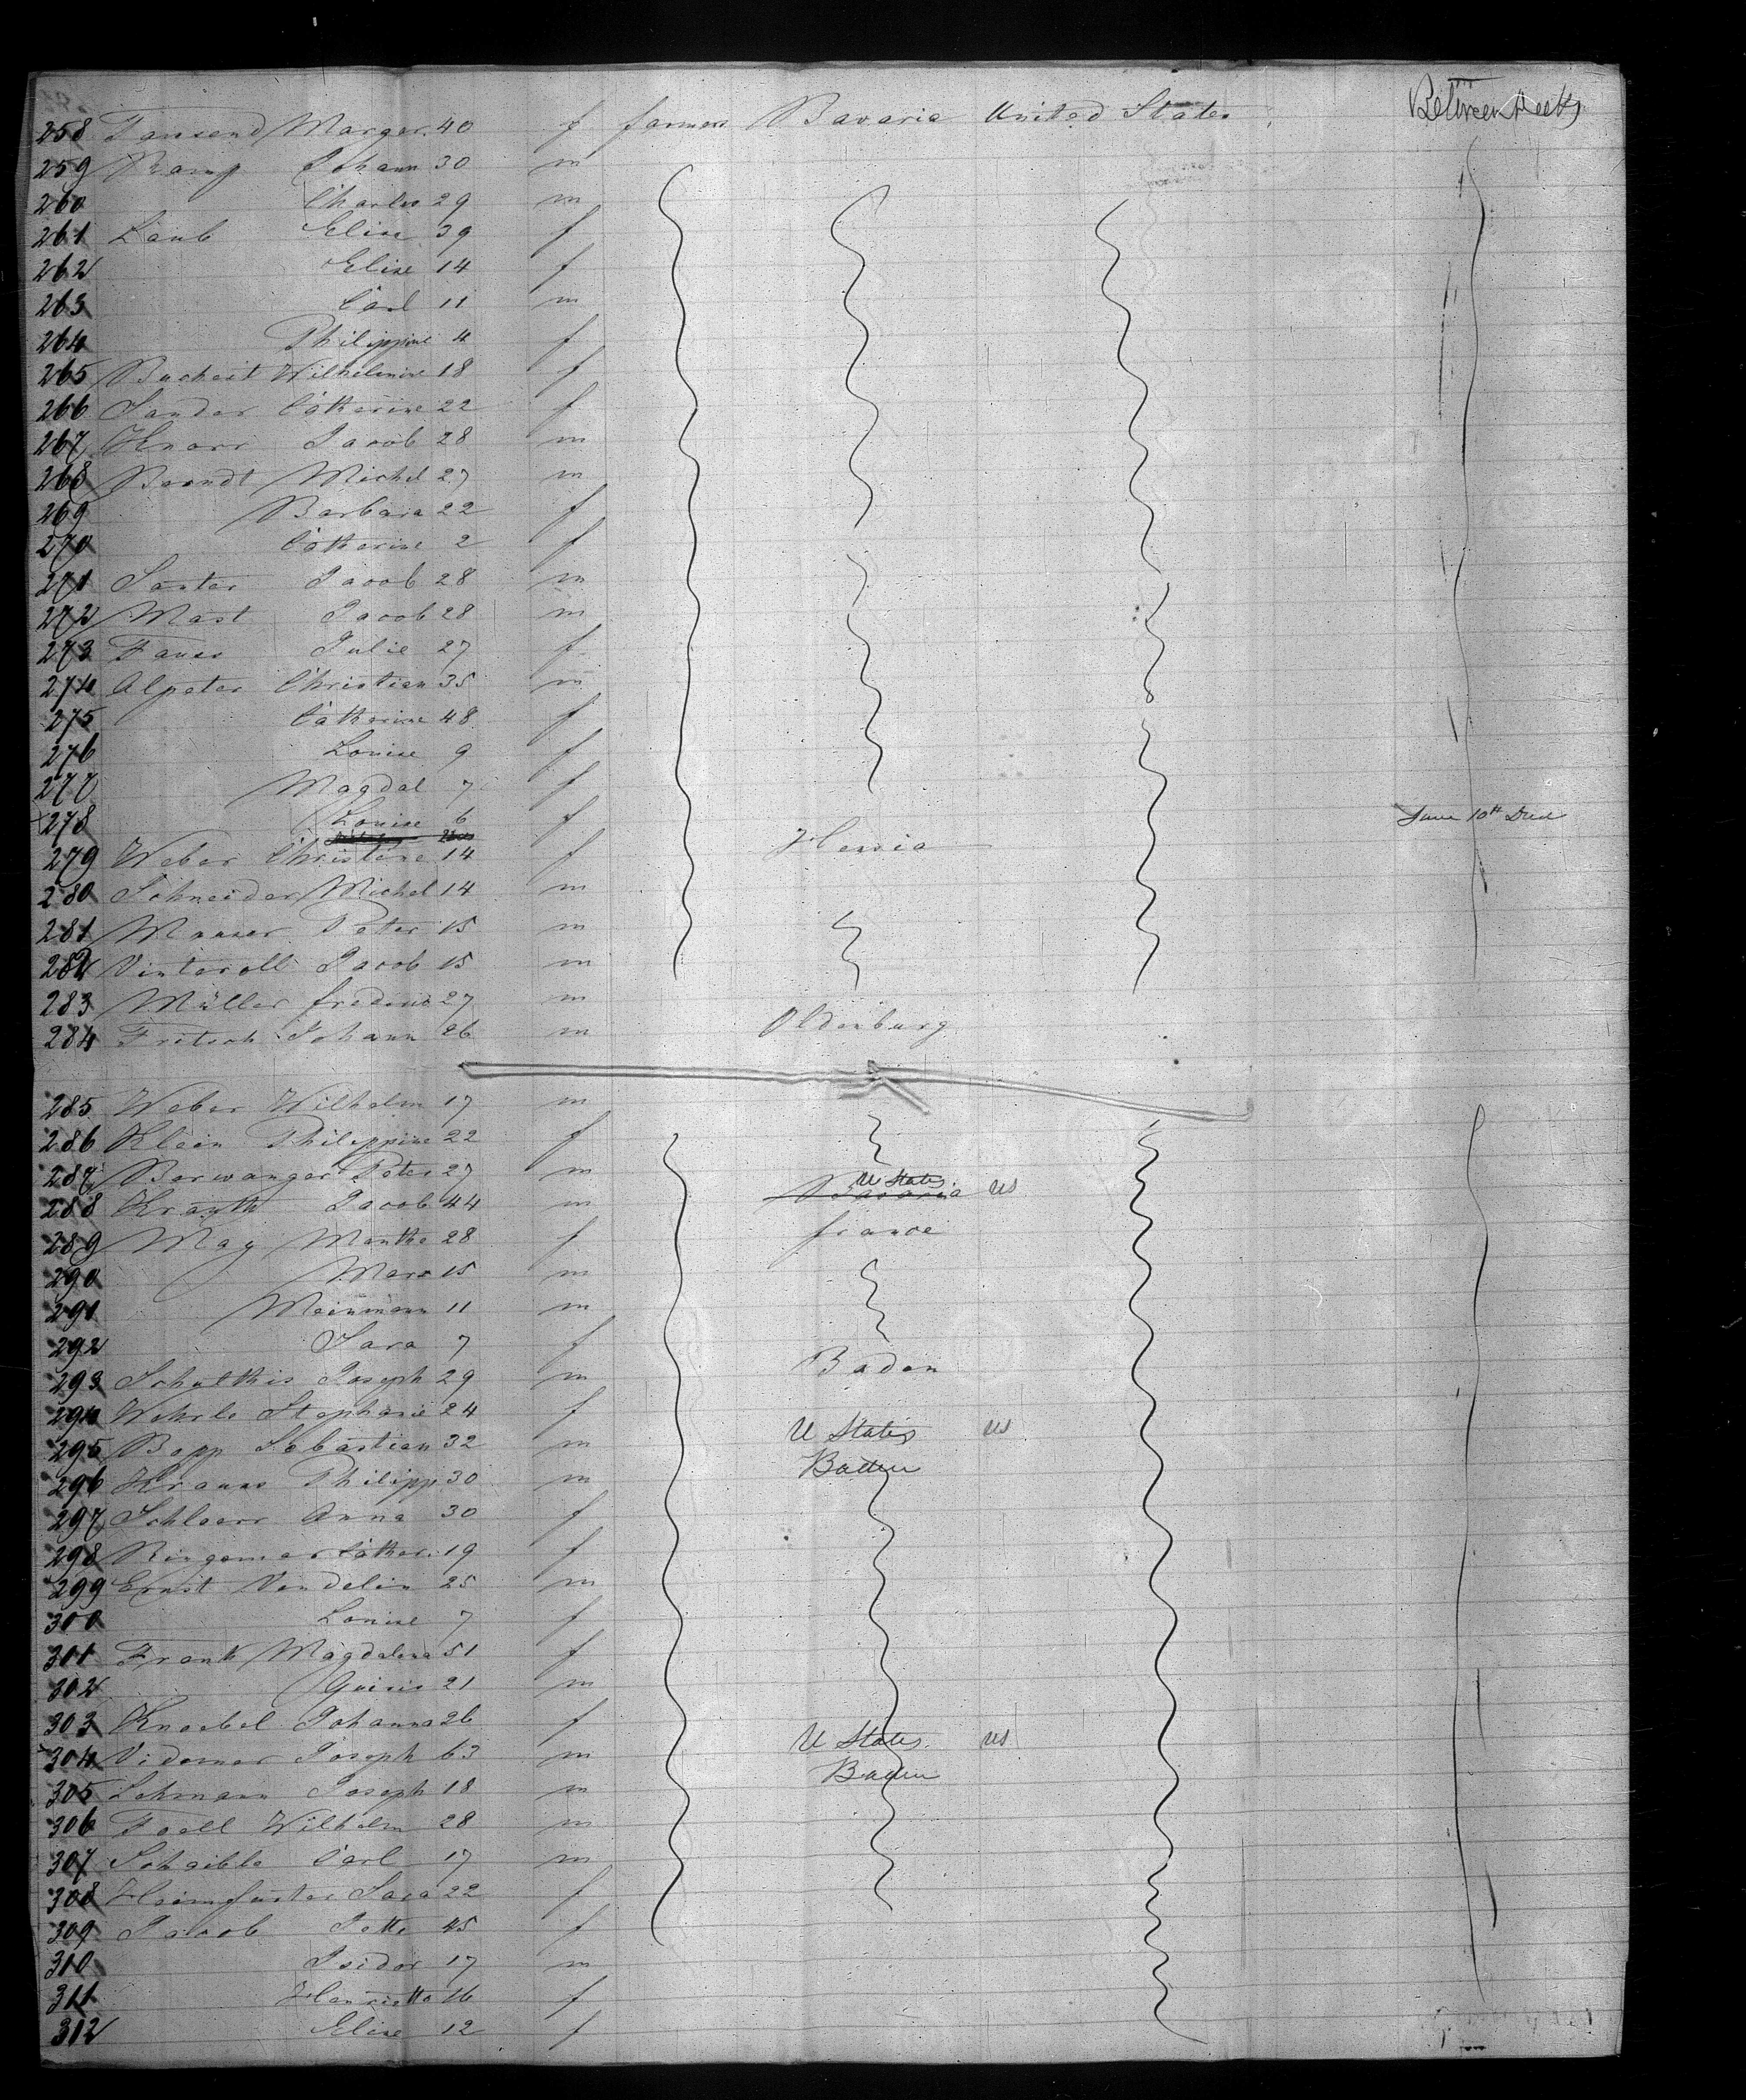 258 Tausend Margar. 40 f farmer Bavaria United States Between Decks
259 Johann 30 m
260 Charles 29 m
261 Laub Elise 39 f
262 Elise 14 f
263 Carl 11 m
264 Philippine 4 f
265 Bucheit Wilhelmine 18 f
266 Sander Catherine 22 f
267 Knorr Jacob 28 m
268 Brandt Michel 27 m
269 Barbara 22 f
270 Catherine 2 f
271 Santer Jacob 28 m
272 Mast Jacob 28 m
273 Faner Julie 27 f
274 Alpeter Christian 35 m
275 Catherine 48 f
276 Louise 9 f
277 Magdal 7 f
278 Louise 6 f June 10th Died
279 Weber Christine 14 f Hessia
280 Schneider Michel 14 m
281 Mauser Peter 15 m
282 Vinteroll Jacob 15 m
283 Müller frederic 27 m
284 Fritsch Johann 26 m Oldenburg
285 Weber Wilhelm 17 m
286 Klein Philippine 22 f
287 Berwanger Peter 27 m U States
288 Krauth Jacob 44 m Bavaria us
289 May Manthe 28 f france
290 Marx 15 m
291 Meinmann 11 m
292 Sara 7 f
293 Schulthis Joseph 29 m Baden
294 Wehrle Stephanie 24 f
295 Bopp Sebastian 32 m U States us
296 Kraus Philipp 30 m Baden
297 Schloerr Anna 30 f
298 Cather. 19 f
299 Ernst Vendelin 25 m
300 Louise 7 f
301 Frank Magdalena 51 f
302 Quirin 21 m
303 Knoebel Johanna 26 f
304 Vidomer Joseph 63 m U States us
305 Lehmann Joseph 18 m Baden
306 Foell Wilhelm 28 m
307 Schaible Carl 17 m
308 Heimfurter Sara 22 f
309 Jacob Jette 45 f
310 Isidor 17 m
311 Henrietta 16 f
312 Elise 12 f